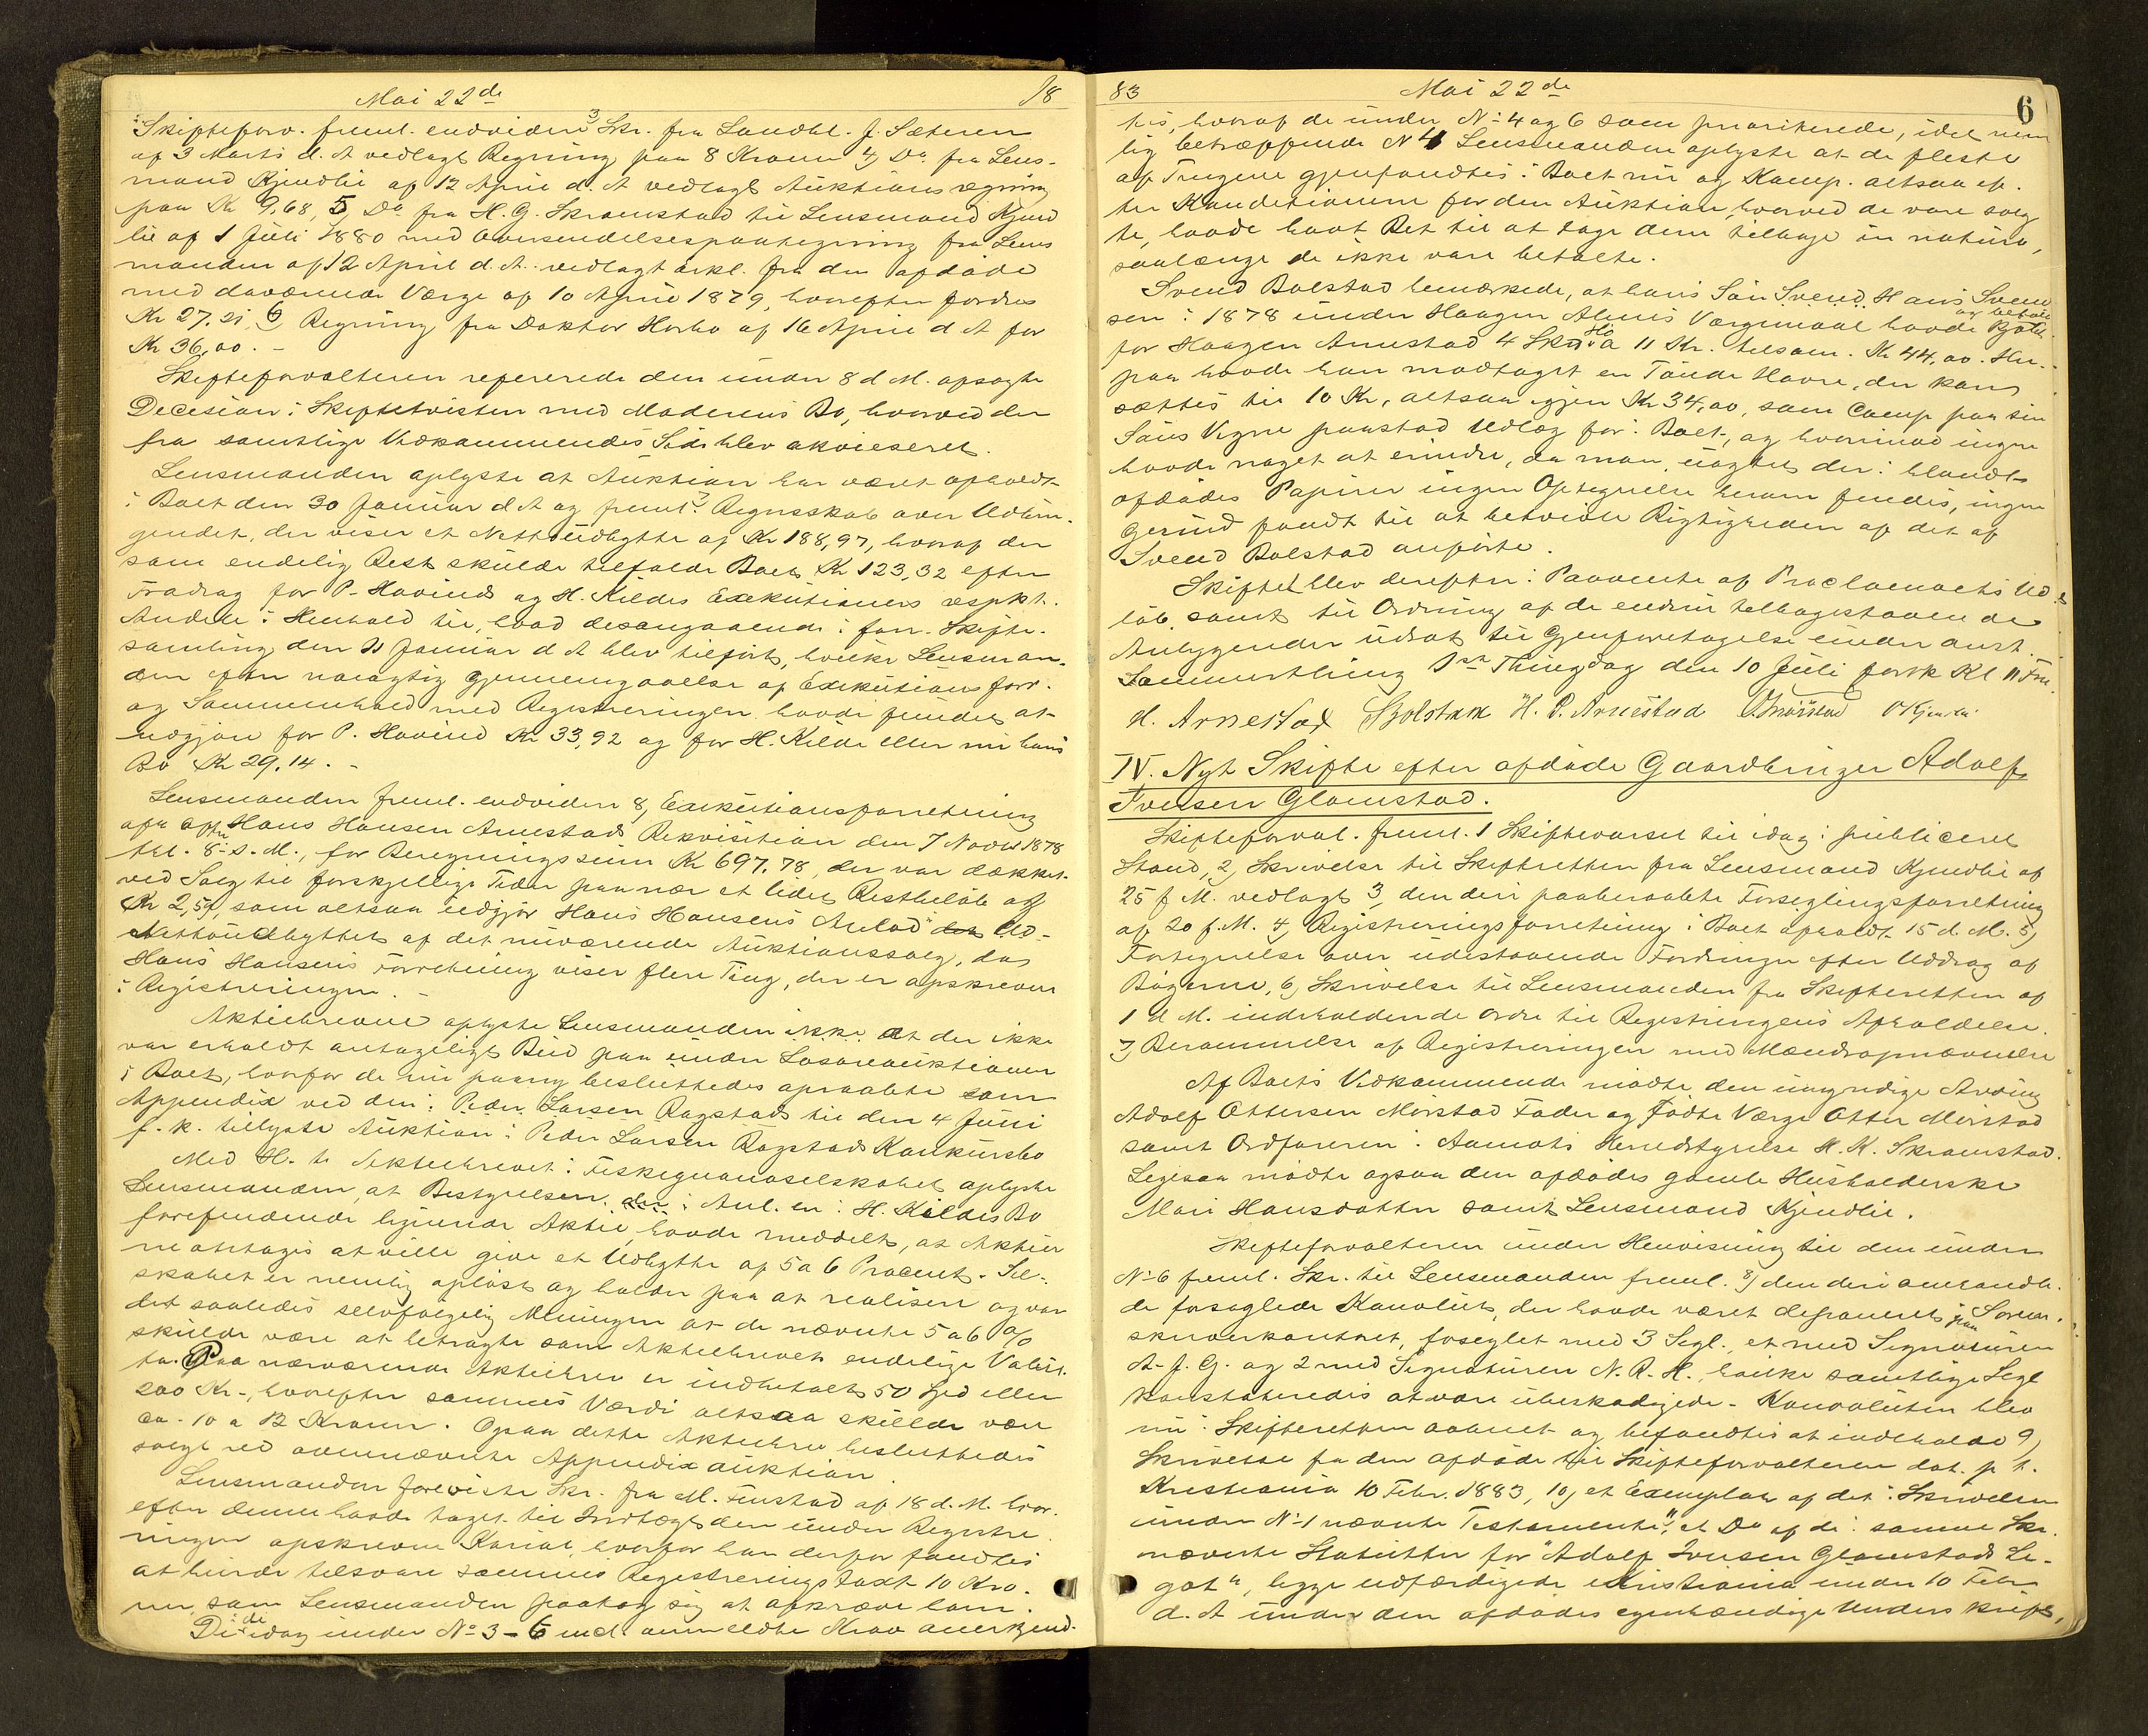 Mai 22de 18
Skifteforv. freml. endvidere 3 Skr. fra Landhl. J. Sæteren
af 3 Marts d. A vedlagt Regning paa 8 Kroner 4, Do fra Lens-
mand Kjendlie af 12 April d. A vedlagt Auktionsregning
paa Kr 9,68, 5, Do fra H. G. Skramstad til Lensmand Kjend
lie af 1 Juli 1880 med Oversendelsespaategning fra Lens
manden af 12 April d. A. vedlagt Erkl. fra den afdøde
med daværende Værge af 10 April 1879, hvorefter fordres
Kr 27.21, 6, Regning fra Doktor Horbo af 16 April d A for
Kr 36,00. -
Skifteforvalteren refererede den under 8 d M. afsagte
Decesion i Skiftetvisten med Moderens Bo, hvorved der
fra samtlige Vedkommendes Side blev akvieseret.
Lensmanden oplyste at Auktion har været afholdt
i Boet den 30 Januar d A og freml. 7 Regnskab over Udbrin-
gendet, der viser et Nettoudbytte af Kr 188,97, hvoraf der
som endelig Rest skulde tilfalde Boet Kr 123,32 efter
Fradrag for P. Hovinds og H. Kildes Exekutioners respkt.
Andele i Henhold til, hvad desangaaende i forr. Skifte-
samling den Januar d A blev tilført, hvilke Lensman-
den efter nøiagtig Gjennemgaaelse af Exekutionsforr.
og Sammenhold med Registreringen havde fundet at
udgjøre for P. Hovind Kr 33,92 og for H. Kilde eller nu hans
Bo Kr 29.14. -
Lensmanden freml. endvidere 8, Exekutionsforretning
efter Hans Hansen Arnestads Rekvisition den 7 Novbr 1878
tgl. 8 s. M., for Beregningssum Kr 697,78, der var dækket
ved Salg til forskjellige Tider paa nær et lidet Restbeløb af
Kr 2,54, som altsaa udgjør Hans Hansens Anlod Ud-
Nettoudbyttet af det nuværende Auktionssalg, da
Hans Hansens Forretning viser flere Ting, der er opskrevne
i Registreringen. -
Aktiebrevene oplyste Lensmanden ikke at der ikke
var erholdt antageligt Bud paa under Løsøreauktionen
i Boet, hvorfor de nu paany besluttedes opraabte som
Appendix ved den i Peder Larsen Rogstads til den 4 Juni
f. k. tillyste Auktion i Peder Larsen Rogstads Konkursbo
Med H. t. Aktiebrevet i Fiskeguanoselskabet oplyste
Lensmanden, at Bestyrelsen i Anl. en i H. Kildes Bo
forefindende lignende Aktie, havde meddelt, at Aktien
ne antages at ville give et Udbytte af 5 a 6 Procent. Sel-
skabet er nemlig opløst og holder paa at realisere og var
det saaledes selvfølgelig Meningen at de nævnte 5 a 6 o/o
skulde være at betragte som Aktiebrevets endelige Valut.
ta. Paa nærværende Aktiebrev er indbetalt 50 Spd eller
200 Kr., hvorefter sammes Værdi altsaa skulde være
ca. 10 a 12 Kroner. Ogsaa dette Aktiebrev besluttedes
solgt ved ovennævnte Appendixauktion.
Lensmanden foreviste Skr. fra M. Finstad af 18 d. M. hvor-
efter denne havde taget til Indtægt den under Registre
ringen opskrevne Kariol, hvorfor han derfor fandtes
at burde tilsvare sammes Registreringstaxt 10 Kro-
ner, som Lensmanden paatog sig at afkræve ham.
De idag under No 3-6 incl. anmeldte Krav anerkjend-
83 Mai 22de 6
tes, hvoraf de under No 4 og 6 som prioriterede, idet nem
lig betræffende No 4 Lensmanden oplyste at de fleste
af Tingene gjenfandtes i Boet nu og Komp. altsaa ef-
ter Konditionerne for den Auktion, hvorved de vare solg
te, havde havt Ret til at tage dem tilbage in natura,
saalænge de ikke vare betalte.
Svend Bolstad bemærkede, at hans Søn Svend Hans Svend
sen i 1878 under Haagen Alms Værgemaal havde kjøbt
og betalt
for Haagen Arnestad 4 Sko a 11 Kr. tilsam. Kr 44,00. Her-
paa havde han modtaget en Tønde Havre, der kan
sættes til 10 Kr, altsaa igjen Kr 34,00, som Comp paa sin
Søns Vegne paastod Udlæg for i Boet, og hvorimod ingen
havde noget at erindre, da man, uagtet der i blandt
afdødes Papirer ingen Optegnelse herom findes, ingen
Grund fandt til at betvivle Rigtigheden af det af
Svend Bolstad anførte.
Skiftet blev derefter i Paavente af Proclamaets Ud-
løb, samt til Ordning af de endnu tilbagestaaende
Anliggender udsat til Gjenforetagelse under anst.
Sommerthing 1ste Thingdag den 10 Juli førstk Kl 11 Fm.
H. Arnestad SBolstad H. P. Arnestad OMørstad OKjendlie
IV. Nyt Skifte efter afdøde Gaardbruger Adolf
Iversen Glomstad.
Skifteforval. freml. 1 Skiftevarsel til idag i publiceret
Stand, 2, Skrivelse til Skifteretten fra Lensmand Kjendlie af
25 f M. vedlagt 3, den deri paaberaabte Forseglingsforretning
af 20 f. M. 4, Registreringsforretning i Boet afholdt 15 d. M. 5,
Fortegnelse over udestaaende Fordringer efter Uddrag af
Bøgerne, 6, Skrivelse til Lensmanden fra Skifteretten af
1 d M. indeholdende Ordre til Registringens Afholdelse.
7, Berammelse af Registreringen med Mændsopnævnelse
Af Boets Vedkommende mødte den umyndige Arving
Adolf Ottersen Mørstad Fader og fødte Værge Otter Mørstad
samt Ordføreren i Aamots Herredstyrelse H. K. Skramstad.
Ligesaa mødte ogsaa den afdødes gamle Husholderske
Mari Hansdatter samt Lensmand Kjendlie.
Skifteforvalteren under Henvisning til den under
No 6 freml. Skr. til Lensmanden freml. 8, den deri omhandle-
de forseglede Konvolut, der havde været deponeret paa Soren-
skriverkontoret, forseglet med 3 Segl., et med Signaturen
A. J. G. og 2 med Signaturen N. R. H., hvilke samtlige Segl
konstateredes at være ubeskadigede. Konvolutten blev
nu i Skifteretten aabnet og befandtes at indeholde 9,
Skrivelse fra den afdøde til Skifteforvalteren dat. p. t.
Kristiania 10 Febr. 1883, 10, et Exemplar af det i Skrivelsen
under No 1 nævnte Testamente, 11, et Do af de i samme Skr.
nævnte Statutter for "Adolf Iversen Glomstads Le-
gat", begge udfærdigede i Kristiania under 10 Febr
d. A under den afdødes egenhændige Underskrift,